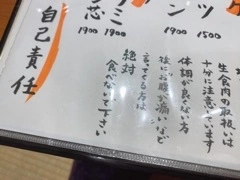 ツ
1500
ン
1900
ミ
1900
志
1900
生食肉の取扱いは
十分に注意ています
体調が良くない方
後にお腹が痛いなど
言ってくる方は
絶対
食べないで下さい
自己責任